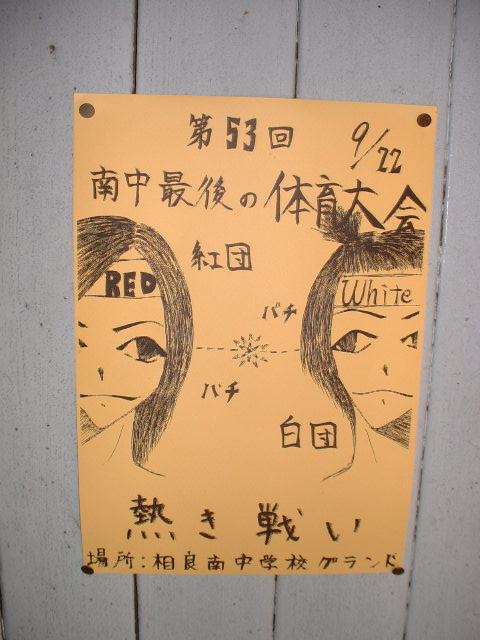 第53回
9/22
南中最後の体育大会
紅団
RED
White
バチ
バチ
白団
熱き戦い
場所:相良南中学校グランド